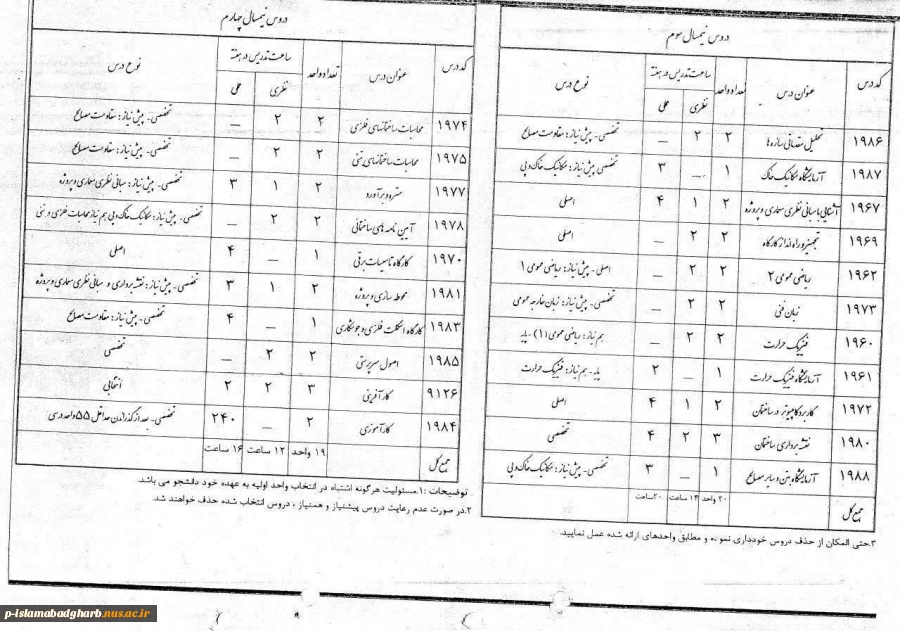 دروس نیمسال سوم
کد درس عنوان درس تعداد واحد ساعت تدریس در هفته نوع درس
نظری عملی
۱۹۸۶ تحلیل مقدماتی سازه ها ۲ ۲ _ تخصصی - پیش نیاز : مقاومت مصالح
۱۹۸۷ آزمایشگاه مکانیک خاک ۱ _ ۳ تخصصی پیش نیاز : مکانیک خاک و پی
۱۹۶۷ آشنایی با مبانی نظری معماری و پروژه ۲ ۱ ۴ اصلی
۱۹۶۹ تجهیز و راه انداز کارگاه ۲ ۲ _ اصلی
۱۹۶۲ ریاضی عمومی ۲ ۲ ۲ _ اصلی - پیش نیاز : ریاضی عمومی ۱
۱۹۷۳ زبان فنی ۲ ۲ _ تخصصی - پیش نیاز : زبان خارجه عمومی
۱۹۶۰ فیزیک حرارت ۲ ۲ _ هم نیاز : ریاضی عمومی (۱) - پایه
۱۹۶۱ آزمایشگاه فیزیک حرارت ۱ _ ۲ پایه - هم نیاز : فیزیک حرارت
۱۹۷۲ کاربرد کامپیوتر در ساختمان ۲ ۱ ۴ اصلی
۱۹۸۰ نقشه برداری ساختمان ۳ ۲ ۴ تخصصی
۱۹۸۸ آزمایشگاه بتن و سایر مصالح ۱ _ ۳ تخصصی - پیش نیاز : مکانیک خاک و پی
جمع کل ۲۰ واحد ۱۴ ساعت ۲۰ ساعت
۳.حتی المکان از حذف دروس خودداری نموده و مطابق واحدهای ارائه شده عمل نمایید.
دروس نیمسال چهارم
کد درس عنوان درس تعداد واحد ساعت تدریس در هفته نوع درس
نظری عملی
۱۹۷۴ محاسبات ساختمانهای فلزی ۲ ۲ _ تخصصی - پیش نیاز : مقاومت مصالح
۱۹۷۵ محاسبات ساختمانهای بتنی ۲ ۲ _ تخصصی - پیش نیاز : مقاومت مصالح
۱۹۷۷ متره و برآورد ۲ ۱ ۳ تخصصی - پیش نیاز : مبانی نظری معماری و پروژه
۱۹۷۸ آیین نامه های ساختمانی ۲ ۲ _ تخصصی - پیش نیاز : مکانیک خاک و پی هم نیاز محاسبات فلزی و بتنی
۱۹۷۰ کارگاه تاسیسات برقی ۱ _ ۴ اصلی
۱۹۸۱ محوطه سازی و پروژه ۲ ۱ ۳ تخصصی - پیش نیاز : نقشه برداری و مبانی نظری معماری و پروژه
۱۹۸۳ کارگاه اسکلت فلزی و جوشکاری ۱ _ ۴ تخصصی - پیش نیاز : مقاومت مصالح
۱۹۸۵ اصول سرپرستی ۲ ۲ _ تخصصی
۹۱۲۶ کارآفرینی ۳ ۲ ۲ انتخابی
۱۹۸۴ کارآموزی ۲ _ ۲۴۰ تخصصی - بعد از گذراندن حداقل ۵۵ واحد درسی
جمع کل ۱۹ واحد ۱۲ ساعت ۱۶ ساعت
توضیحات :۱.مسئولیت هرگونه اشتباه در انتخاب واحد اولیه به عهده خود دانشجو می باشد.
۲.در صورت عدم رعایت دروس پیشنیاز و همنیاز ، دروس انتخاب شده حذف خواهند شد.
p-islamabadgharb.nus.ac.ir